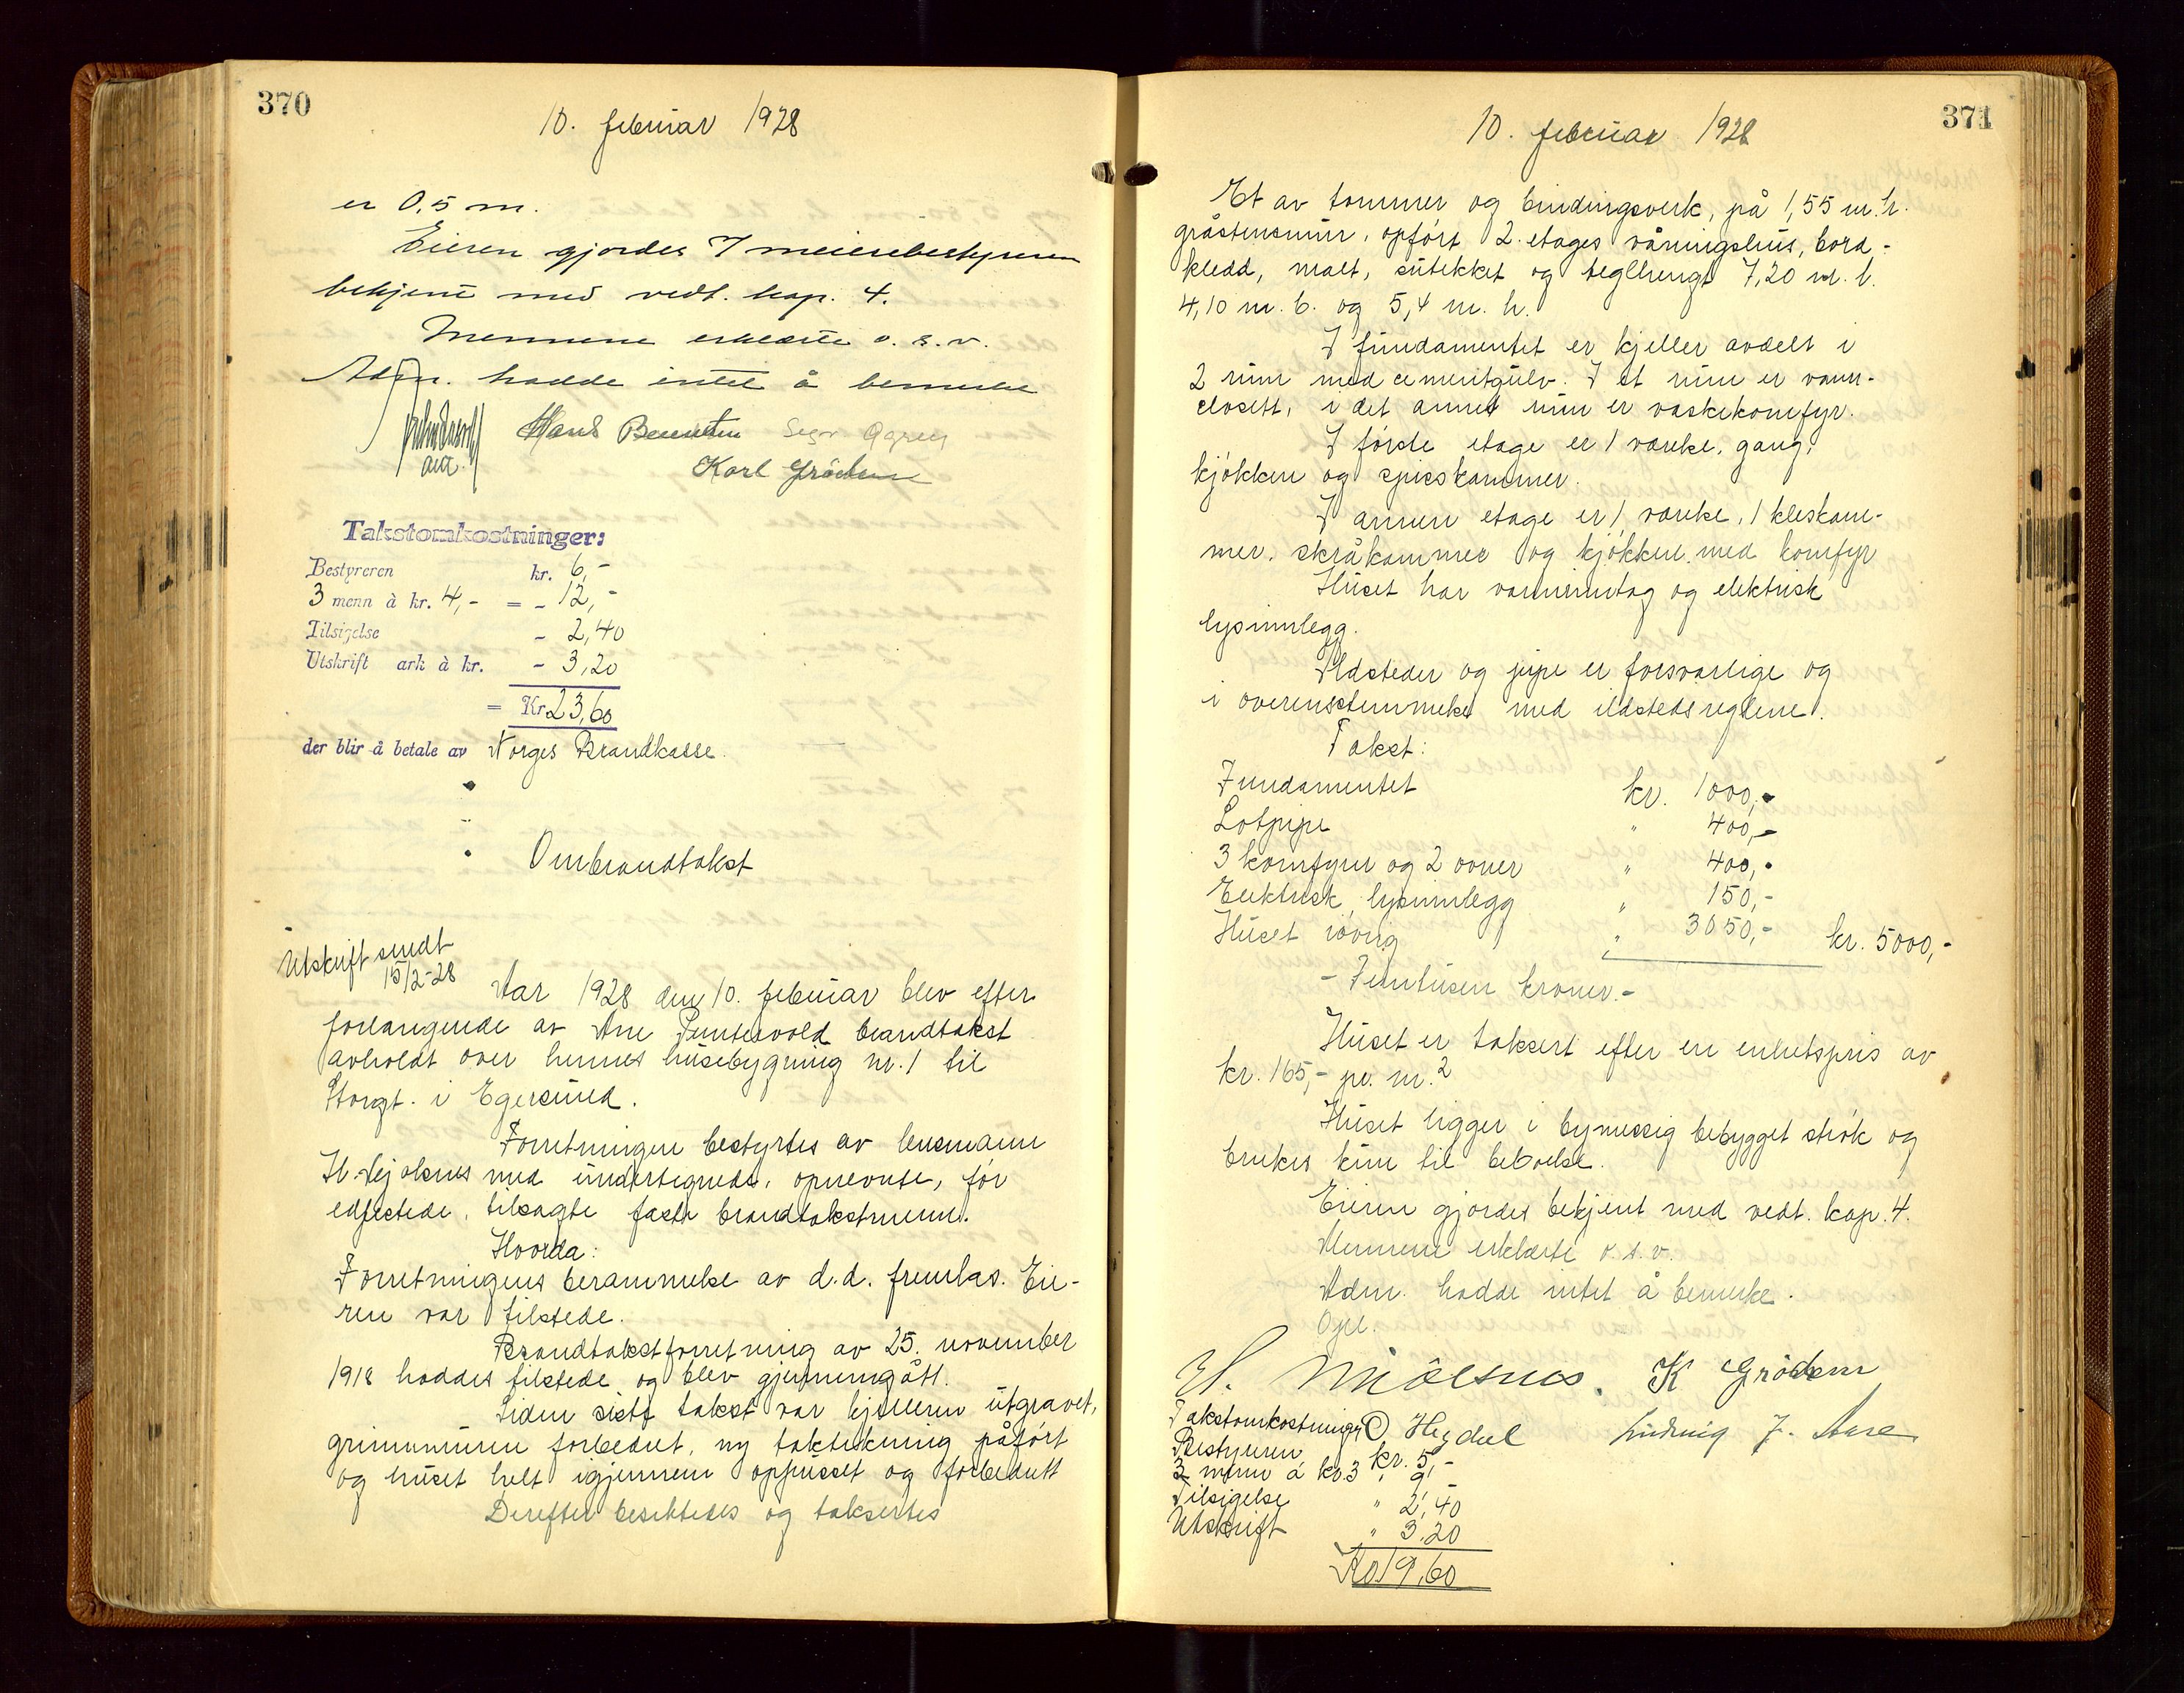 370
10. februar 1928
er 0,5 m.
Eieren gjordes v/ meieribestyreren
bekjent med vedt. kap. 4.
Mennene erklærte o. s. v.
Adm. hadde intet å bemerke
Hans Berentsen
Karl Grödem
Takstomkostninger:
Bestyreren kr. 6,-
3 menn à kr. 4,- = - 12,-
Tilsigelse - 2,40
Utskrift ark à kr. - 3,20
= Kr. 23,60
der blir å betale av Norges Brandkasse.
Ombrandtakst
Utskrift sendt
15/2-28
Aar 1928 den 10. februar blev efter
forlangende av Ane Puntesvold brandtakst
avholdt over hennes husebygning nr. 1 til
Storgt. i Egersund.
Forretningen bestyrtes av lensmann
H. Mjølsnes med undertegnede, opnevnte, før
edfestede, tilsagte faste brandtakstmenn.
Hvorda:
Forretningens berammelse av d.d. fremlas. Eie-
ren var tilstede.
Brandtakstforretning av 25. november
1918 haddes tilstede og blev gjennemgått.
Siden siste takst var kjelleren utgravet,
grunnmuren forbedret, ny taktekning påført
og huset helt igjennem oppusset og forbedrett
Derefter besiktedes og taksertes
371
10. februar 1928
Et av tømmer og bindingsverk, på 1,55 m. h.
gråstensmur, opført 2. etages våningshus, bord-
kledd, malt, sutekket og teglhengt 7,20 m. l.
4,10 m. b. og 5,4 m. h.
I fundamentet er kjeller avdelt i
2 rum med cementgulv. I et rum er vann-
closett, i det annet rum er vaskekomfyr.
I første etage er 1 værelse, gang,
kjøkken og spiskammer.
I annen etage er 1 værelse, 1 kleskam-
mer, skråkammer og kjøkken med komfyr
Huset har vanninntag og elektrisk
lysinnlegg.
Ildsteder og pipe er forsvarlige og
i overensstemmelse med ildstedsreglene.
Takst:
Fundamentet kr. 1000,-
Lotpipe " 400,-
3 komfyrer og 2 ovner " 400,-
Elektrisk lysinnlegg " 150,-
Huset iøvrig " 3050,- kr. 5000,-
- Femtusen kroner.-
Huset er taksert efter en enhetspris av
kr. 165,- pr. m.2
Huset ligger i bymessig bebygget strøk og
brukes kun til beboelse.
Eieren gjordes bekjent med vedt. kap. 4.
Mennene erklærte o. s. v.
Adm. hadde intet å bemerke.
Opl.
H. Mjölsnes. K Grödem
O Hegdal Ludvig J. Aase
Takstomkostninger
Bestyreren kr. 5,-
3 menn à kr. 3 " 9,-
Tilsigelse " 2,40
Utskrift " 3,20
Kr. 19,60